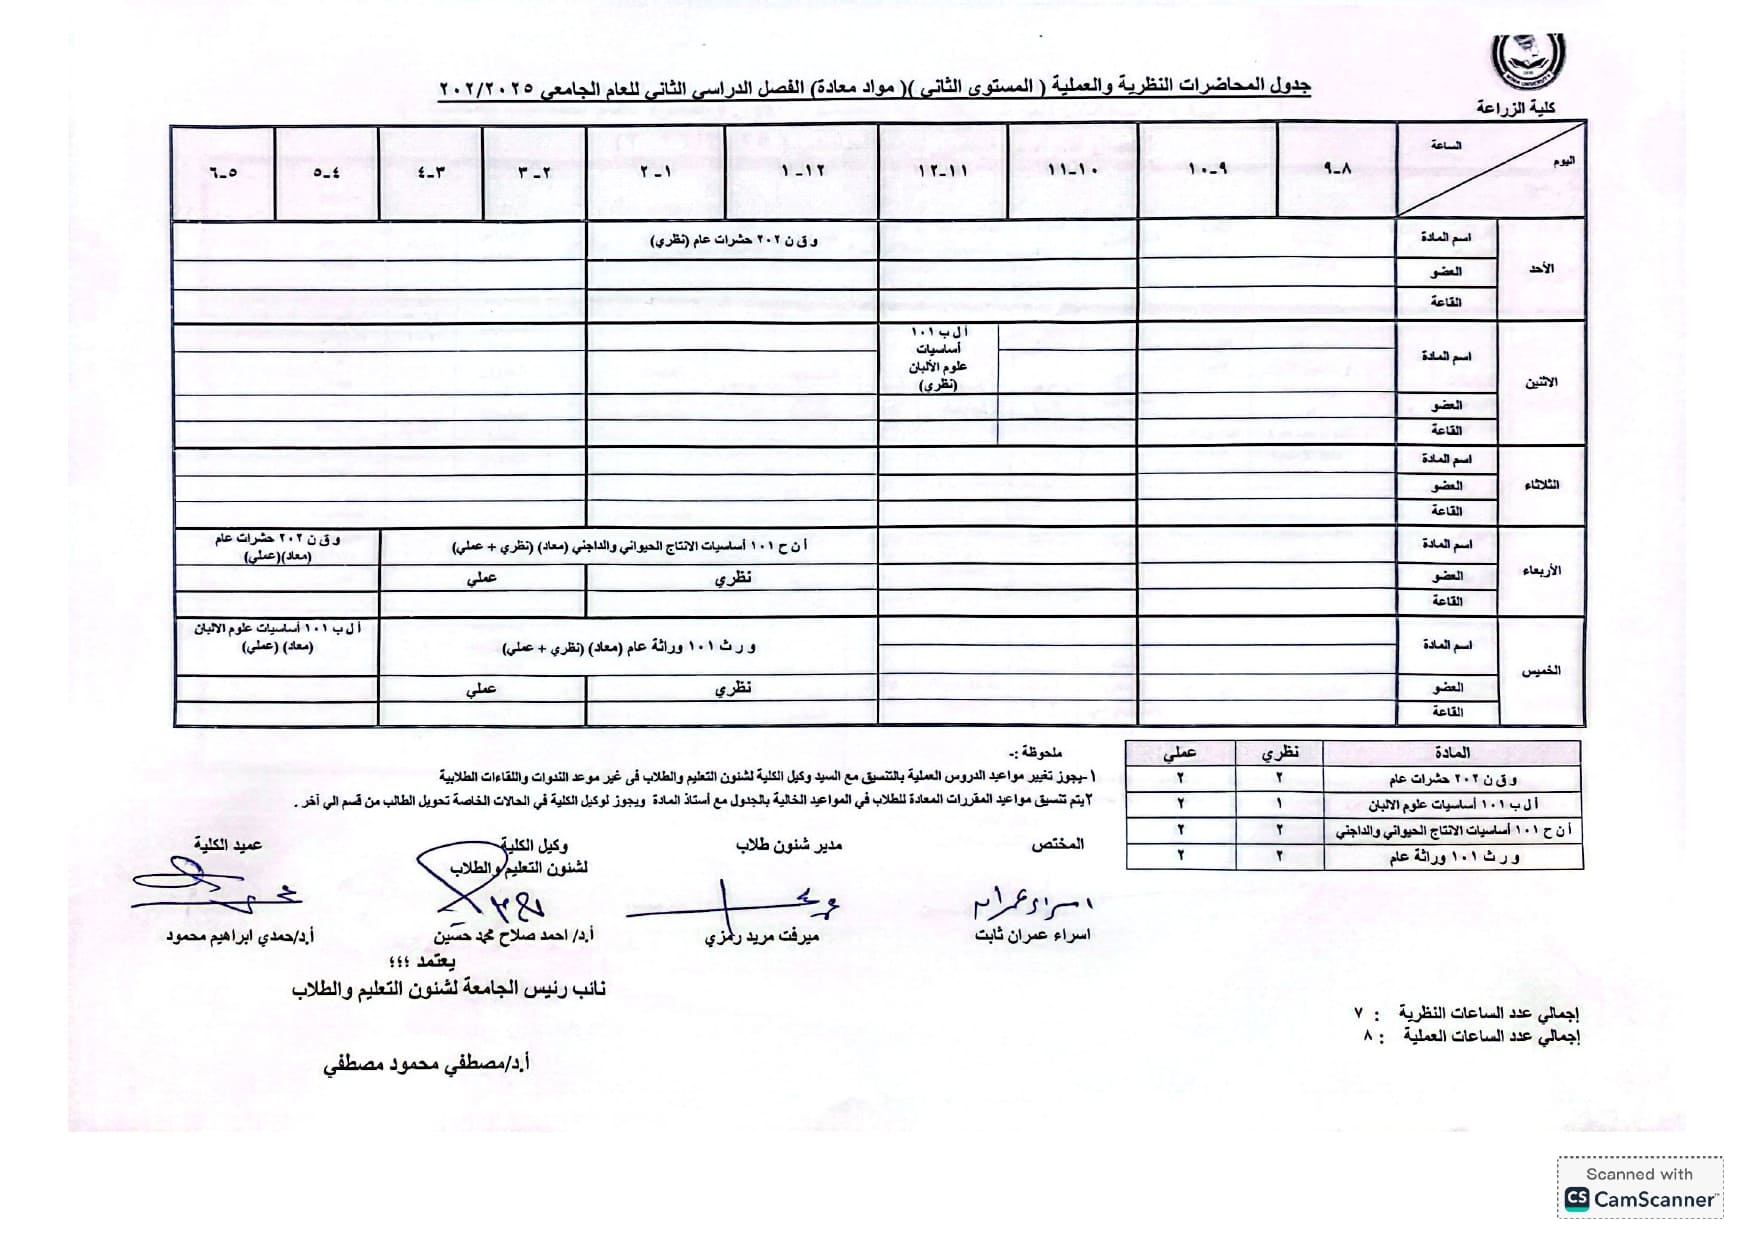 MINIA UNIVERSITY
كلية الزراعة
جدول المحاضرات النظرية والعملية ( المستوى الثاني )( مواد معادة) الفصل الدراسي الثاني للعام الجامعي ٢٠٢/٢٠٢٥
اليوم الساعة ٨-٩ ٩-١٠ ١٠-١١ ١١-١٢ ١٢-١ ١-٢ ٢-٣ ٣-٤ ٤-٥ ٥-٦
الأحد
اسم المادة و ق ن ٢٠٢ حشرات عام (نظري)
العضو
القاعة
الاثنين
اسم المادة
أ ل ب ١٠١
أساسيات
علوم الألبان
(نظري)
العضو
القاعة
الثلاثاء
اسم المادة
العضو
القاعة
الأربعاء
اسم المادة أ ن ح ١٠١ أساسيات الانتاج الحيواني والداجني (معاد) (نظري + عملي)
و ق ن ٢٠٢ حشرات عام
(معاد)(عملي)
العضو نظري عملي
القاعة
الخميس
اسم المادة و ر ث ١٠١ وراثة عام (معاد) (نظري + عملي)
أ ل ب ١٠١ أساسيات علوم الالبان
(معاد) (عملي)
العضو نظري عملي
القاعة
المادة نظري عملي
و ق ن ٢٠٢ حشرات عام ٢ ٢
أ ل ب ١٠١ أساسيات علوم الالبان ١ ٢
أ ن ح ١٠١ أساسيات الانتاج الحيواني والداجني ٢ ٢
و ر ث ١٠١ وراثة عام ٢ ٢
ملحوظة :-
١-يجوز تغيير مواعيد الدروس العملية بالتنسيق مع السيد وكيل الكلية لشئون التعليم والطلاب فى غير موعد الندوات واللقاءات الطلابية
٢يتم تنسيق مواعيد المقررات المعادة للطلاب في المواعيد الخالية بالجدول مع أستاذ المادة ويجوز لوكيل الكلية في الحالات الخاصة تحويل الطالب من قسم الي آخر .
المختص
مدير شئون طلاب
وكيل الكلية
لشئون التعليم والطلاب
عميد الكلية
اسراء عمران
اسراء عمران ثابت
ميرفت مريد رمزي
أ.د/ احمد صلاح محمد حسين
أ.د/حمدي ابراهيم محمود
يعتمد ؛؛؛
نائب رئيس الجامعة لشئون التعليم والطلاب
أ.د/مصطفي محمود مصطفي
إجمالي عدد الساعات النظرية : ٧
إجمالي عدد الساعات العملية : ٨
Scanned with
CS CamScanner